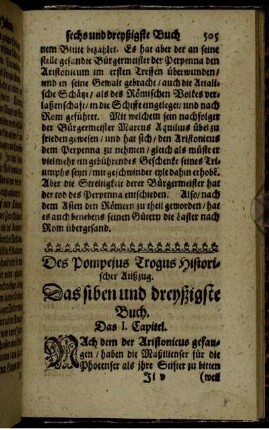 sechs und dreyßigste Buch 505
nem Blute bezahlet. Es hat aber der an seine
stelle gesandte Bürgermeister der Perpenna den
Aristonicum im ersten Treffen überwunden/
und in seine Gewalt gebracht/ auch die Attali-
sche Schätz/ als des Römischen Volkes ver-
laßenschaft/ in die Schiffe eingeleget/ und nach
Rom geführet. Mit welchem sein nachfolger
der Bürgermeister Marcus Aquilius übel zu
frieden gewesen/ und hat sich/ den Aristonicus
dem Perpenna zu nehmen/ gleich als müste er
vielmehr ein gebührendes Geschenke seines Tri-
umphs seyn/ mit geschwinder eyle dahin erhobē.
Aber die Streitigkeit derer Bürgermeister hat
der tod des Perpenna entschieden. Also/ nach
dem Asien den Römern zu theil geworden/ hat
es auch benebens seinen Gütern die laster nach
Rom übergesand.
Des Pompejus Trogus Histori-
scher Außzug.
Das siben und dreyßigste
Buch.
Das I. Capitel.
NAch dem der Aristonicus gefan-
gen/ haben die Maßilienser für die
Phocenser als ihre Stifter zu bitten
Ii v (weil